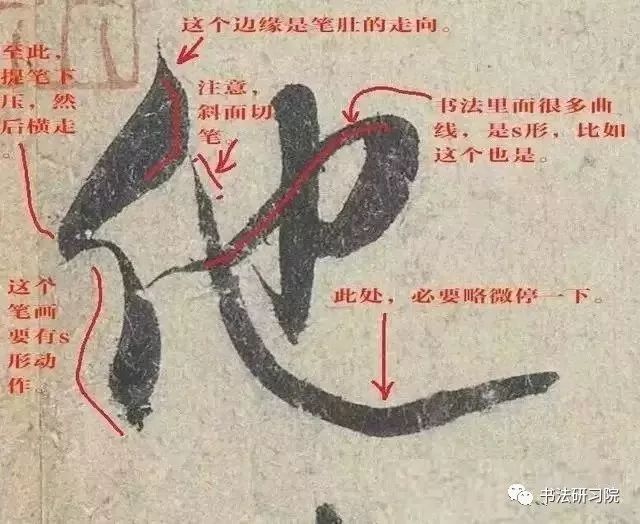 这个边缘是笔肚的走向。
至此，
提笔下
压，然
后横走
。
注意，
斜面切
笔
书法里面很多曲
线，是s形，比如
这个也是。
他
此处，必要略微停一下。
这个
笔画
要有s
形动
作。
书法研习院